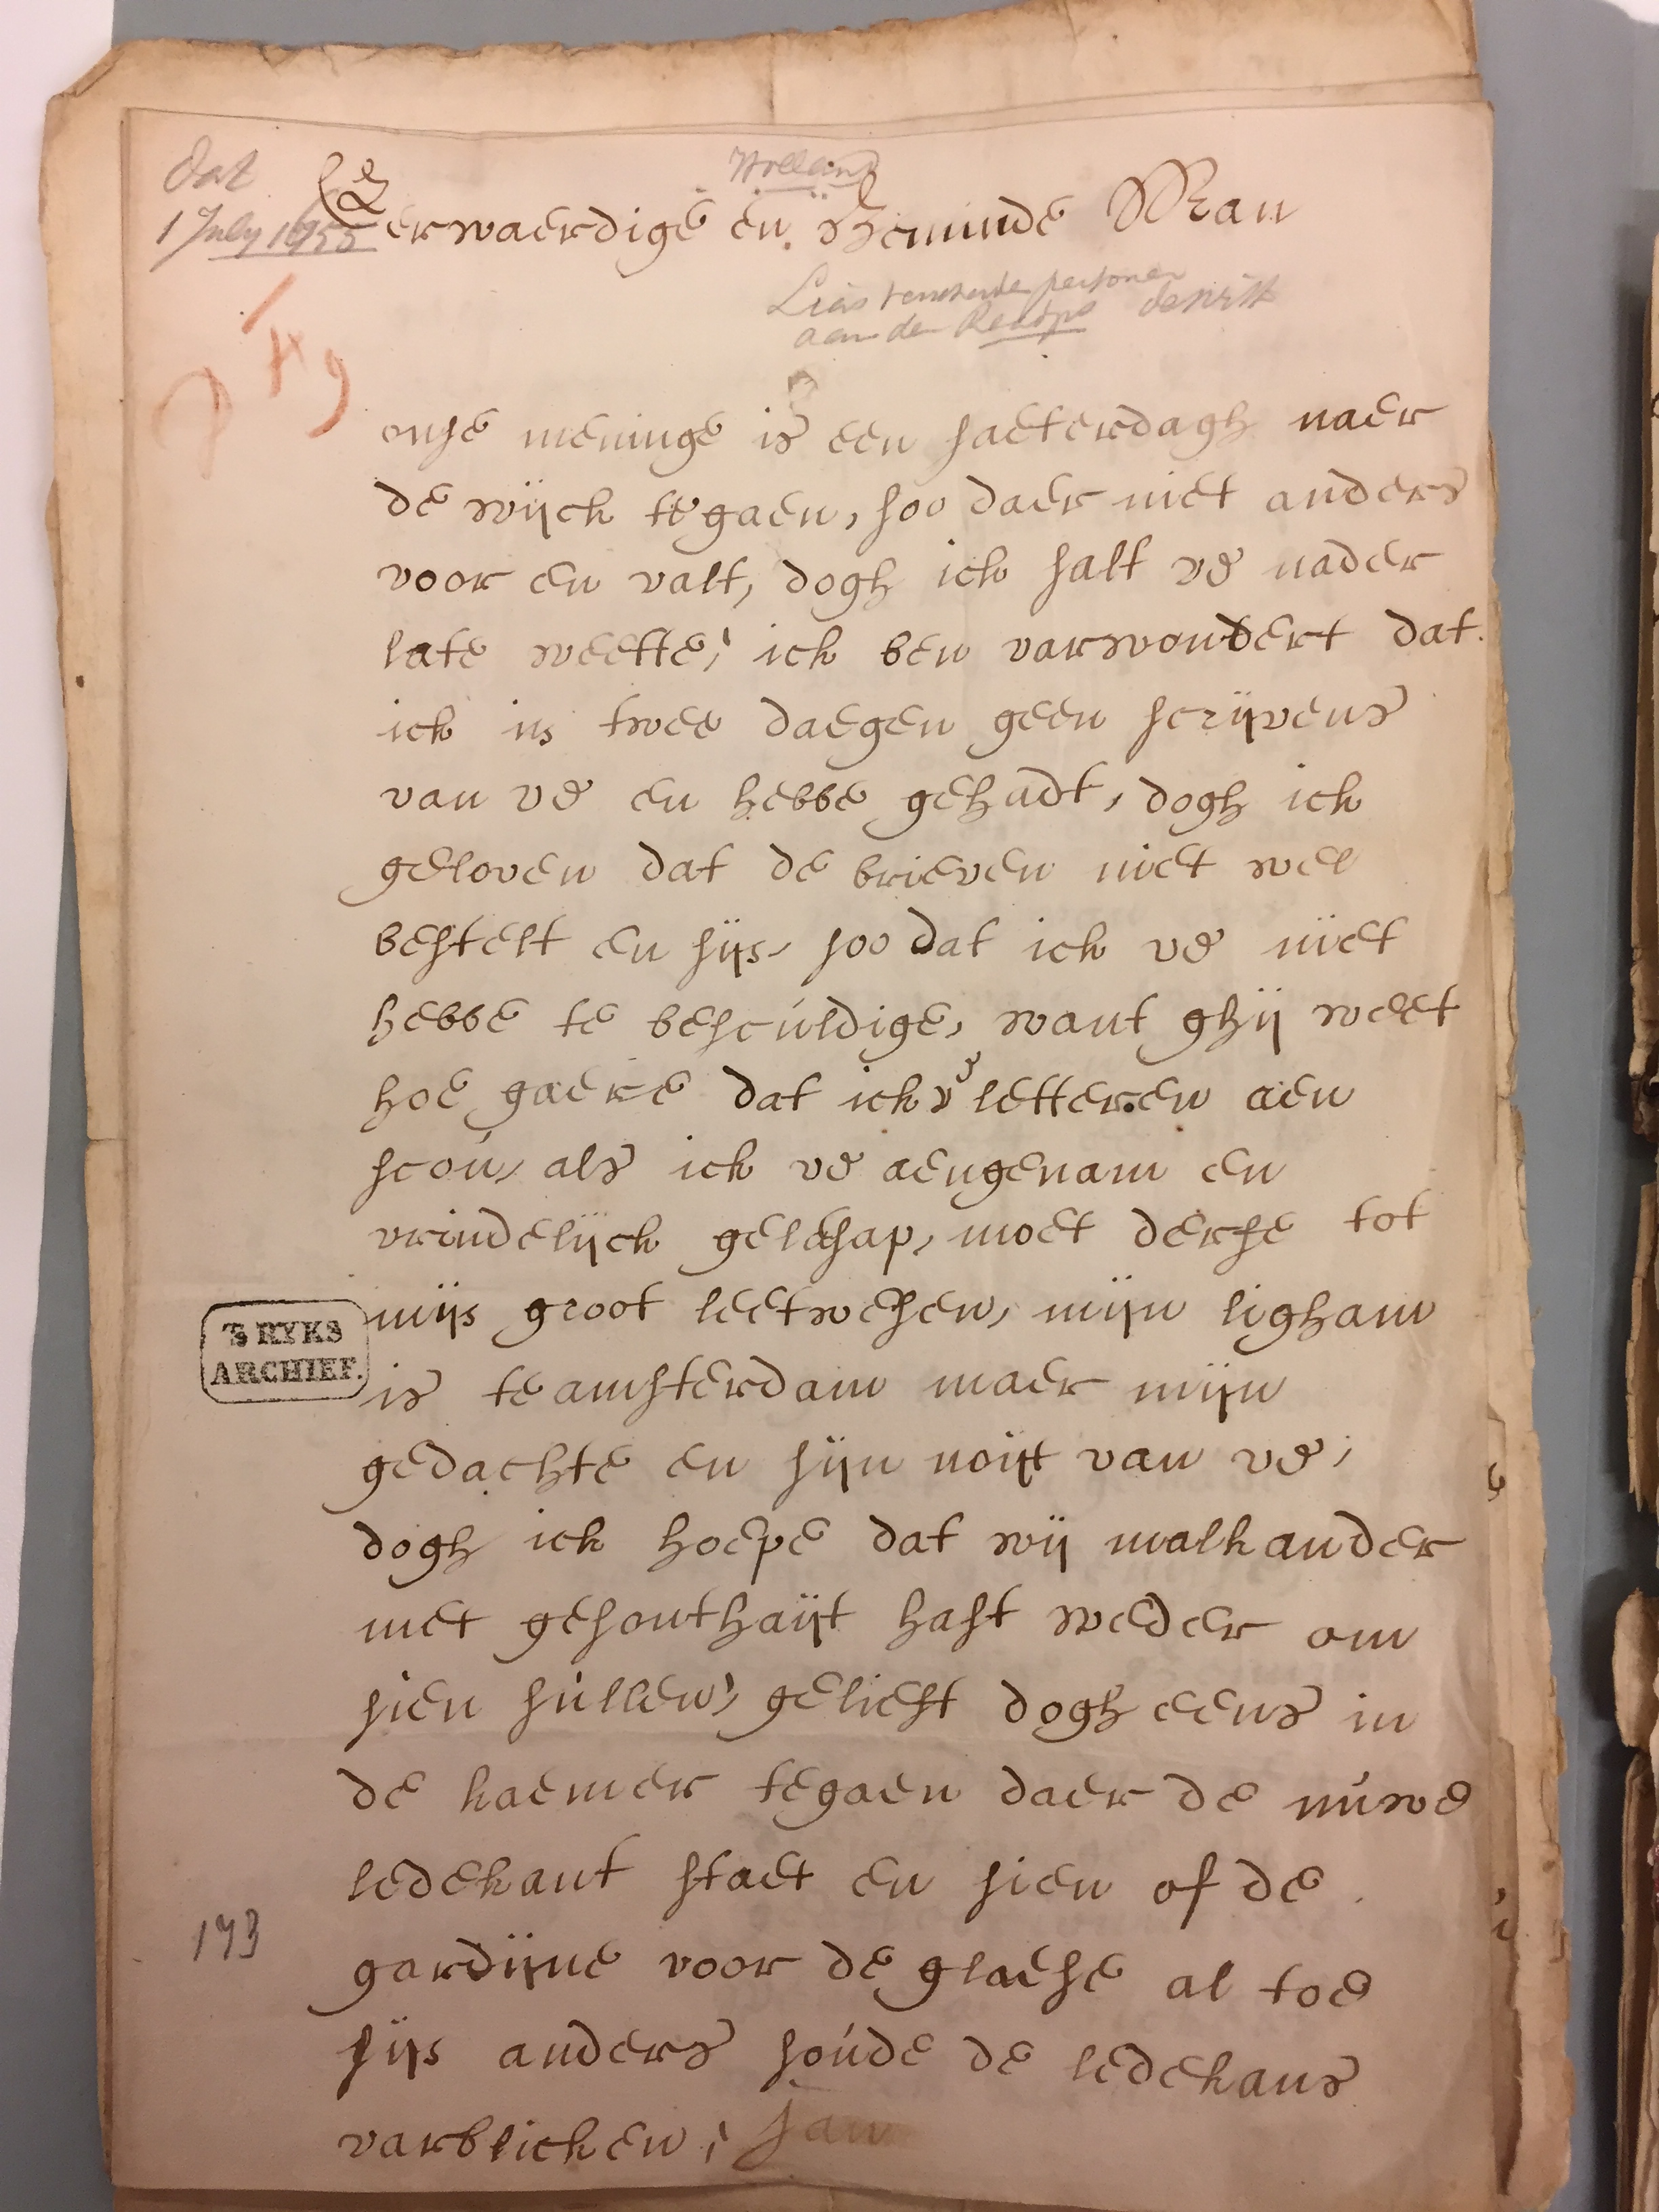 dat
1 July 1655
Holland
Eerwaerdige en Beminde Man
aen de Raedps de Witt
onse meninge is een saeterdagh naer
de wijck te gaen, soo daer niet anders
voor en valt, dogh ick salt ue nader
late weette, ick ben varwondert dat
ick in twee daegen geen scrijvens
van ue en hebbe gehadt, dogh ick
geloven dat de brieven niet wel
bestelt en sijn, soo dat ick ue niet
hebbe te besculdige, want ghij weet
hoe gaere dat ick ue letteren aen
scou, als ick ue aengenam en
vrindelijck gelschap, moet derse tot
mijn groot leetwesen, mijn ligham
is te amsterdam maer mijn
gedachte en sijn noijt van ue,
dogh ick hoepe dat wij malkander
met gesonthaijt hast weder om
sien sullen, geliest dogh eens in
de kaemer te gaen daer de nuwe
ledekant staet en sien of de
gardijne voor de glaese al toe
sijn anders soude de ledekans
varblicken, Jan
'S RYKS
ARCHIEF.
193